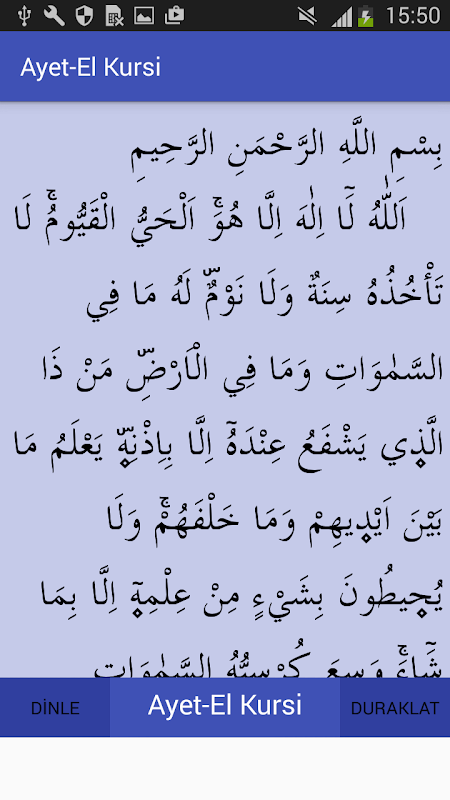 15:50
Ayet-El Kursi
بِسْمِ اللَّهِ الرَّحْمَنِ الرَّحِيمِ
اَللّٰهُ لَٓا اِلٰهَ اِلَّا هُوَۚ اَلْحَيُّ الْقَيُّومُۚ لَا
تَأْخُذُهُ سِنَةٌ وَلَا نَوْمٌۜ لَهُ مَا فِي
السَّمٰوَاتِ وَمَا فِي الْاَرْضِۜ مَنْ ذَا
الَّذ۪ي يَشْفَعُ عِنْدَهُٓ اِلَّا بِاِذْنِه۪ۜ يَعْلَمُ مَا
بَيْنَ اَيْد۪يهِمْ وَمَا خَلْفَهُمْۚ وَلَا
يُح۪يطُونَ بِشَيْءٍ مِنْ عِلْمِه۪ٓ اِلَّا بِمَا
شَٓاءَۚ وَسِعَ كُرْسِيُّهُ السَّمٰوَاتِ
DİNLE
Ayet-El Kursi
DURAKLAT